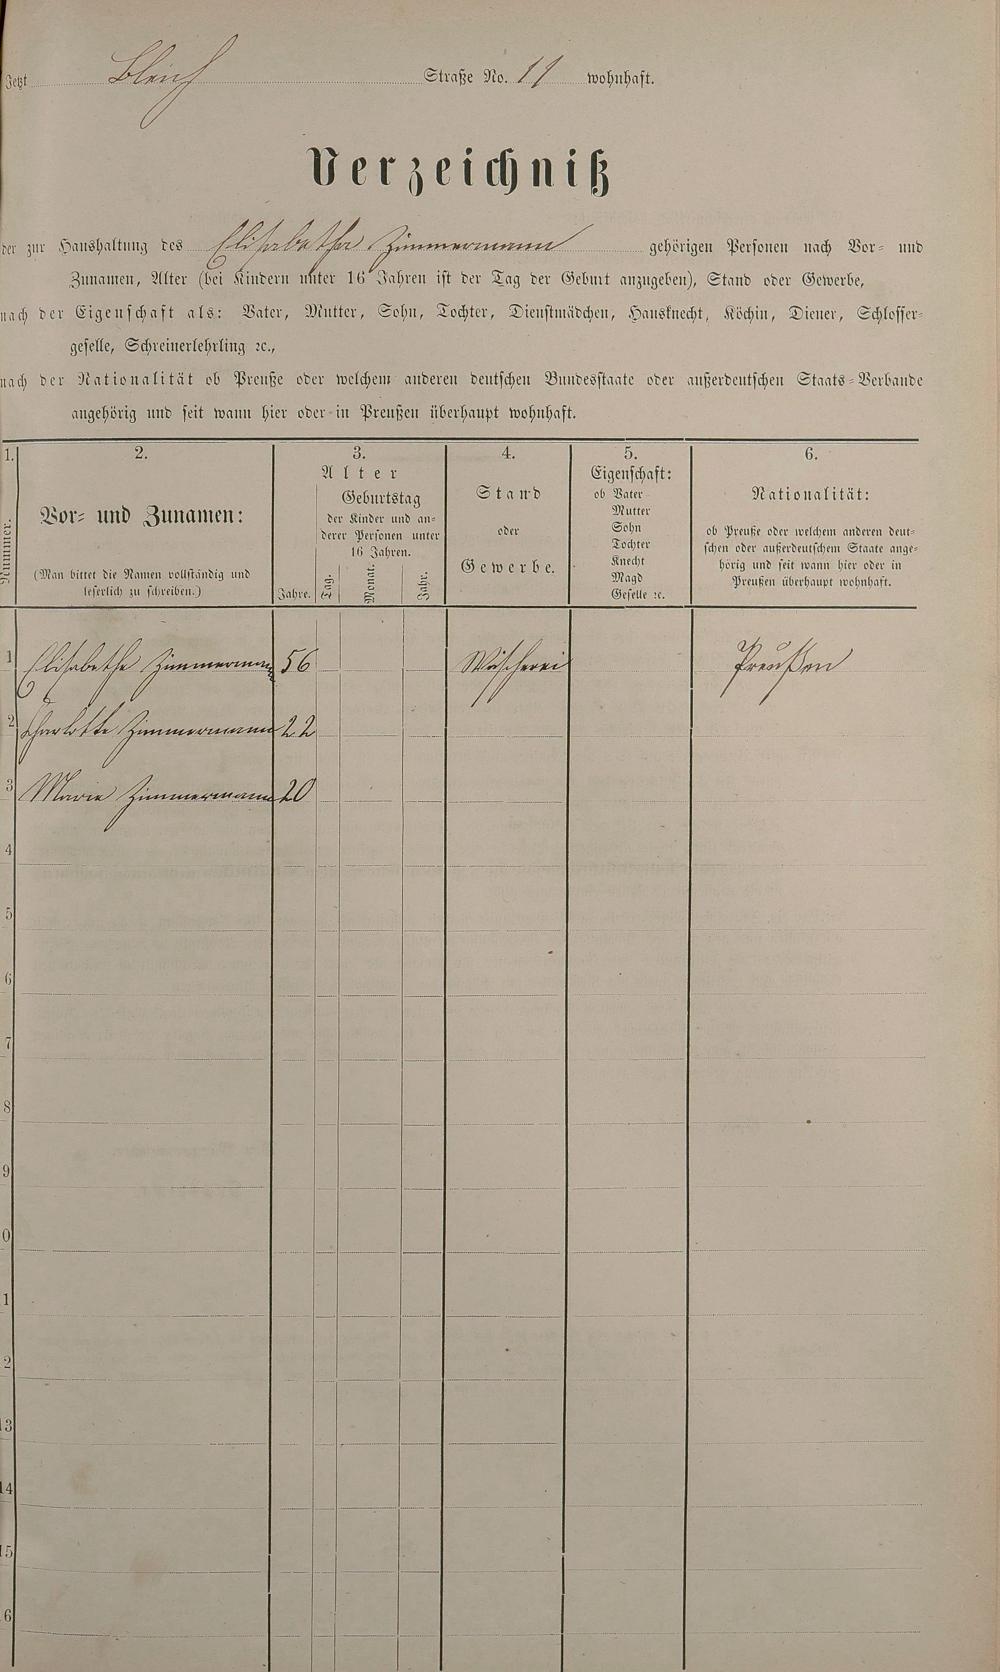 Jetzt Bleich Straße No. 11 wohnhaft.
Verzeichniß
der zur Haushaltung des Elisabetha Zimmermann gehörigen Personen nach Vor- und
Zunamen, Alter (bei Kindern unter 16 Jahren ist der Tag der Geburt anzugeben), Stand oder Gewerbe,
nach der Eigenschaft als: Vater, Mutter, Sohn, Tochter, Dienstmädchen, Hausknecht, Köchin, Diener, Schlosser-
geselle, Schreinerlehrling ꝛc.,
nach der Nationalität ob Preuße oder welchem anderen deutschen Bundesstaate oder außerdeutschen Staats-Verbande
angehörig und seit wann hier oder in Preußen überhaupt wohnhaft.
1.
Nummer.
2.
Vor- und Zunamen:
(Man bittet die Namen vollständig und
leserlich zu schreiben.)
3.
Alter
Jahre.
Geburtstag
der Kinder und an-
derer Personen unter
16 Jahren.
Tag.
Monat.
Jahr.
4.
Stand
oder
Gewerbe.
5.
Eigenschaft:
ob Vater
Mutter
Sohn
Tochter
Knecht
Magd
Geselle ꝛc.
6.
Nationalität:
ob Preuße oder welchem anderen deut-
schen oder außerdeutschem Staate ange-
hörig und seit wann hier oder in
Preußen überhaupt wohnhaft.
1 Elisabethe Zimmermann 56 Wäscherei Preußen
2 Charlotte Zimmermann 22
3 Marie Zimmermann 20
4
5
6
7
8
9
0
1
2
13
14
15
6